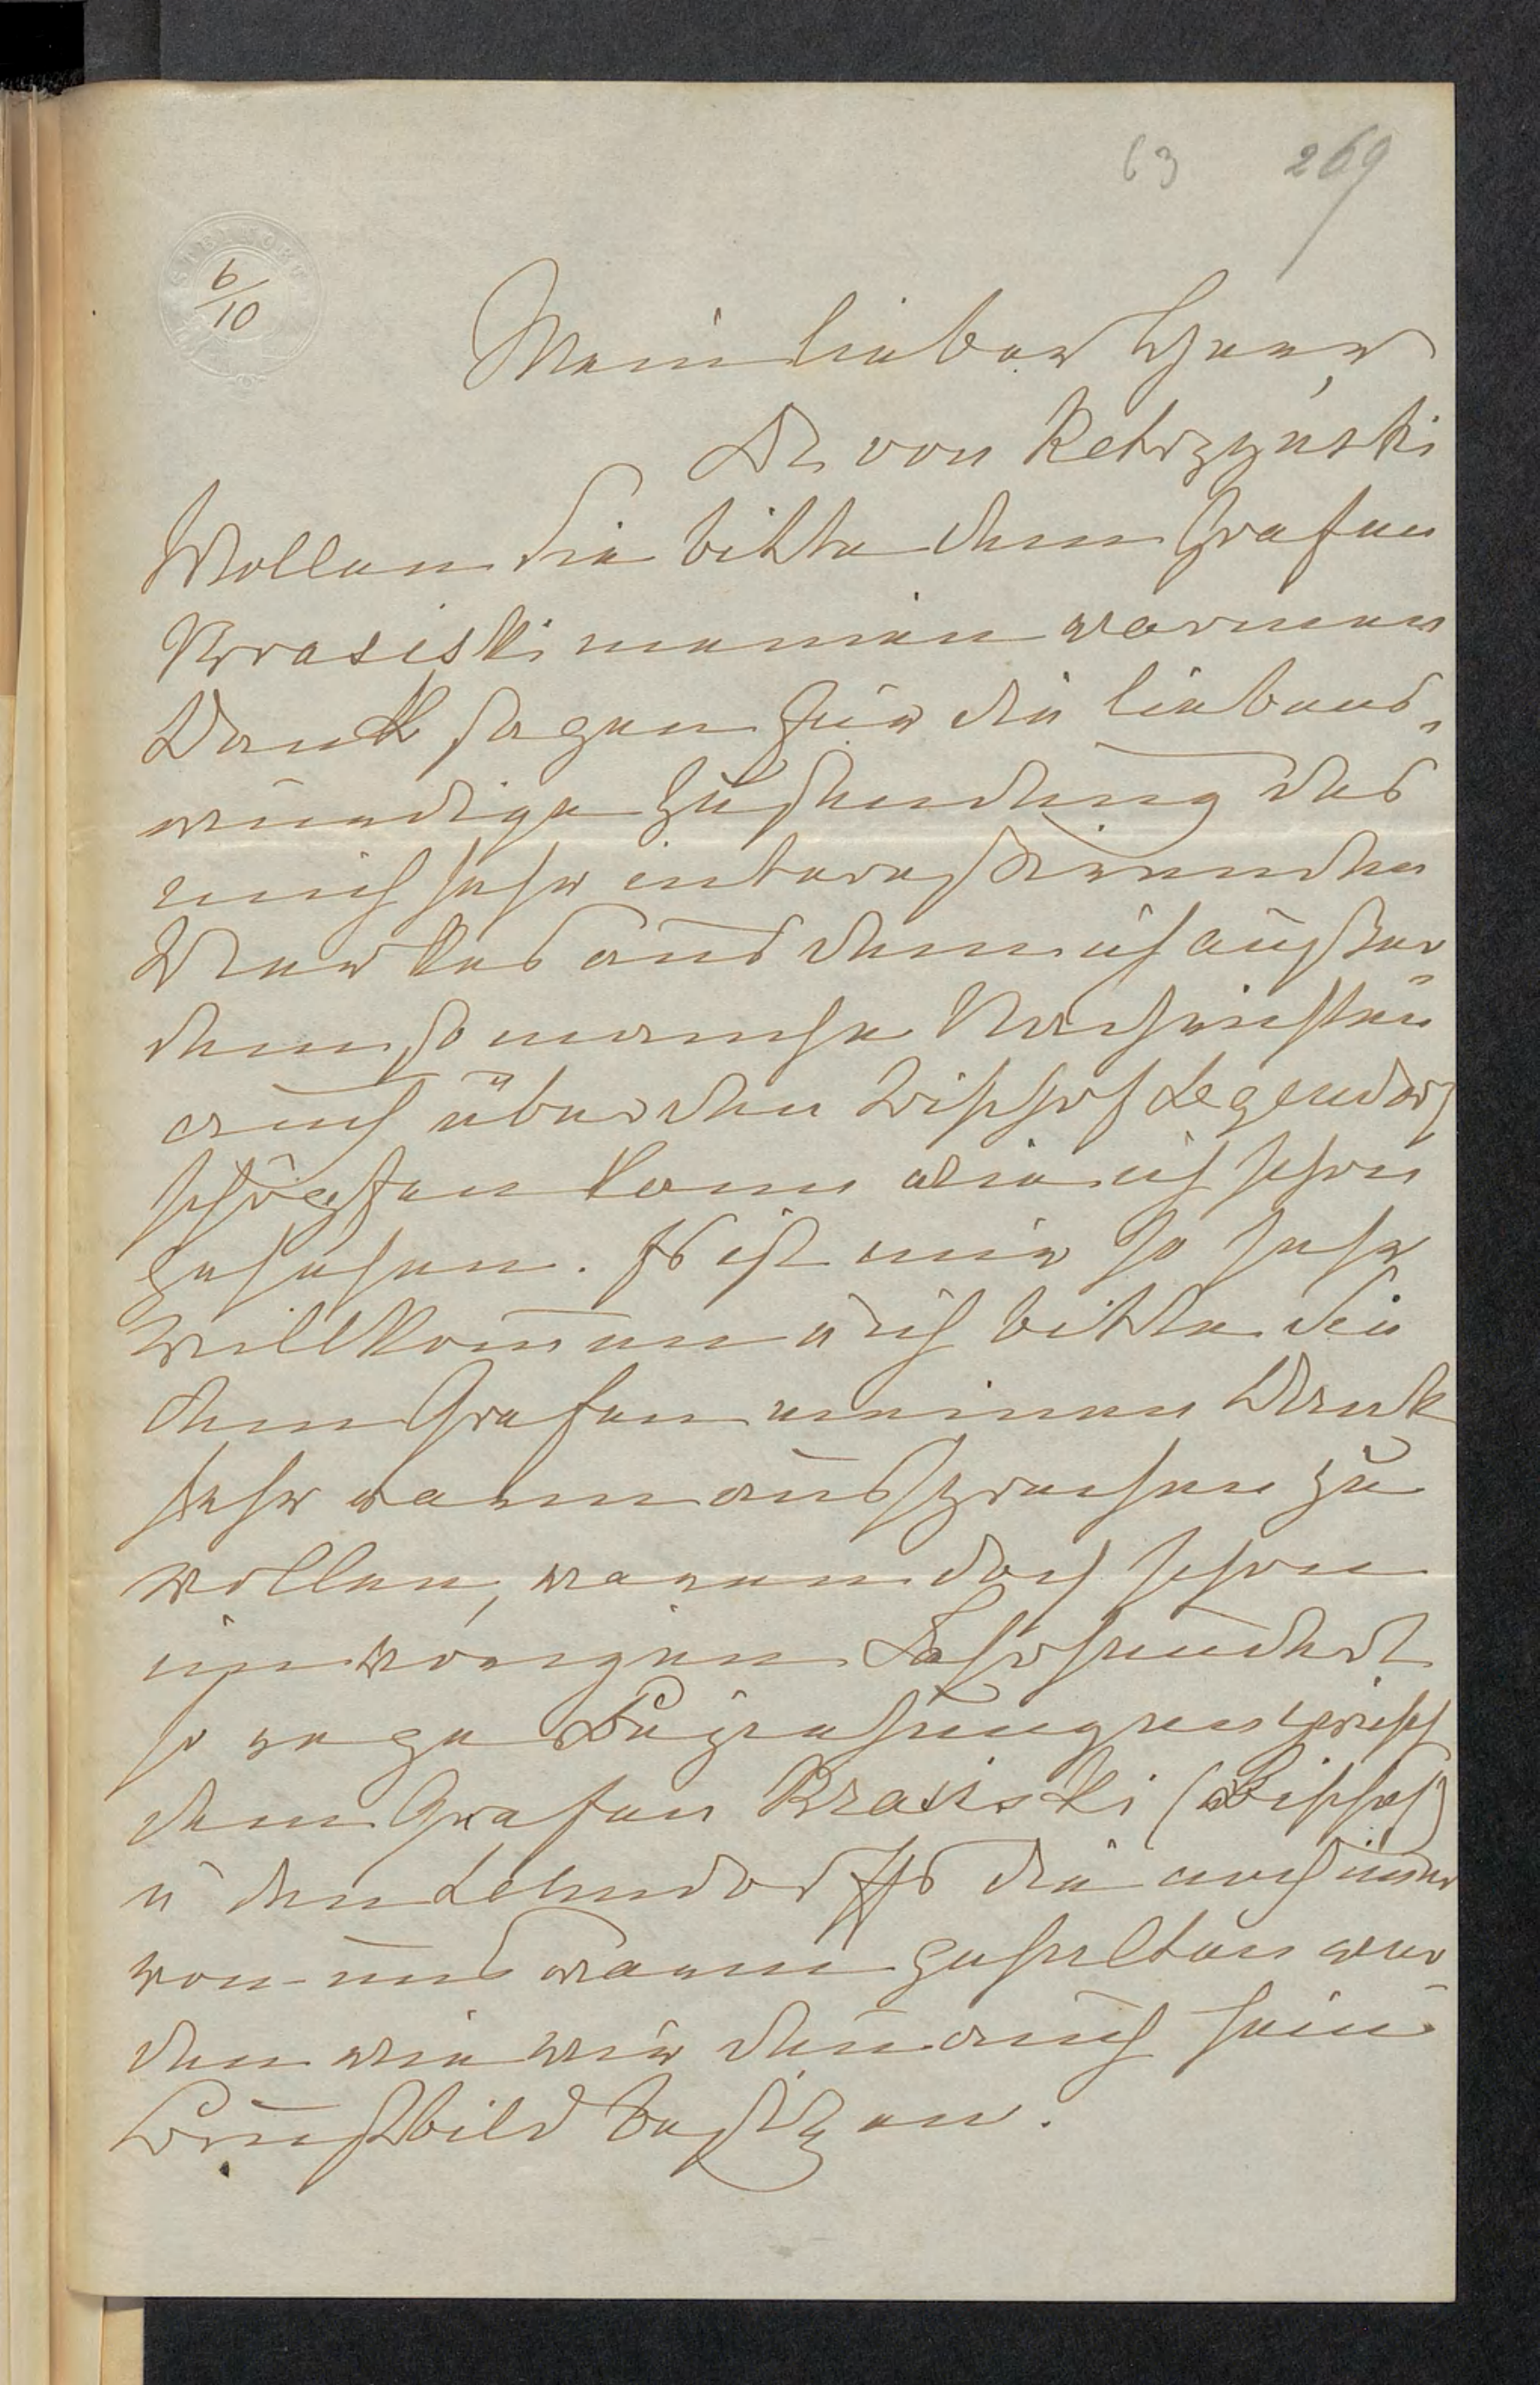 63 269
6/10
Mein lieber Herr
Dr von Ketrzyński
Wollen Sie bitte dem Grafen
Krasiski meinen warmen
Dank sagen für die liebens„
würdige Zusendung des
mich sehr interessirenden
Werkes aus dem ich außer
dem so manche Nachrichten
auch über den Bischof Legendorf
schöpfen kann wie ich schon
gesehen. Es ist mir so sehr
willkommen u ich bitte Sie
dem Grafen meinen Dank
sehr warm aussprechen zu
wollen, waren doch schon
im vorigen Jahrhundert
so rege Beziehungen zwisch
dem Grafen Krasiski (Bischof)
u den Lehndorffs die auch immer
von uns warm gehalten wer
den wie wir denn auch sein
Brustbild besitzen.